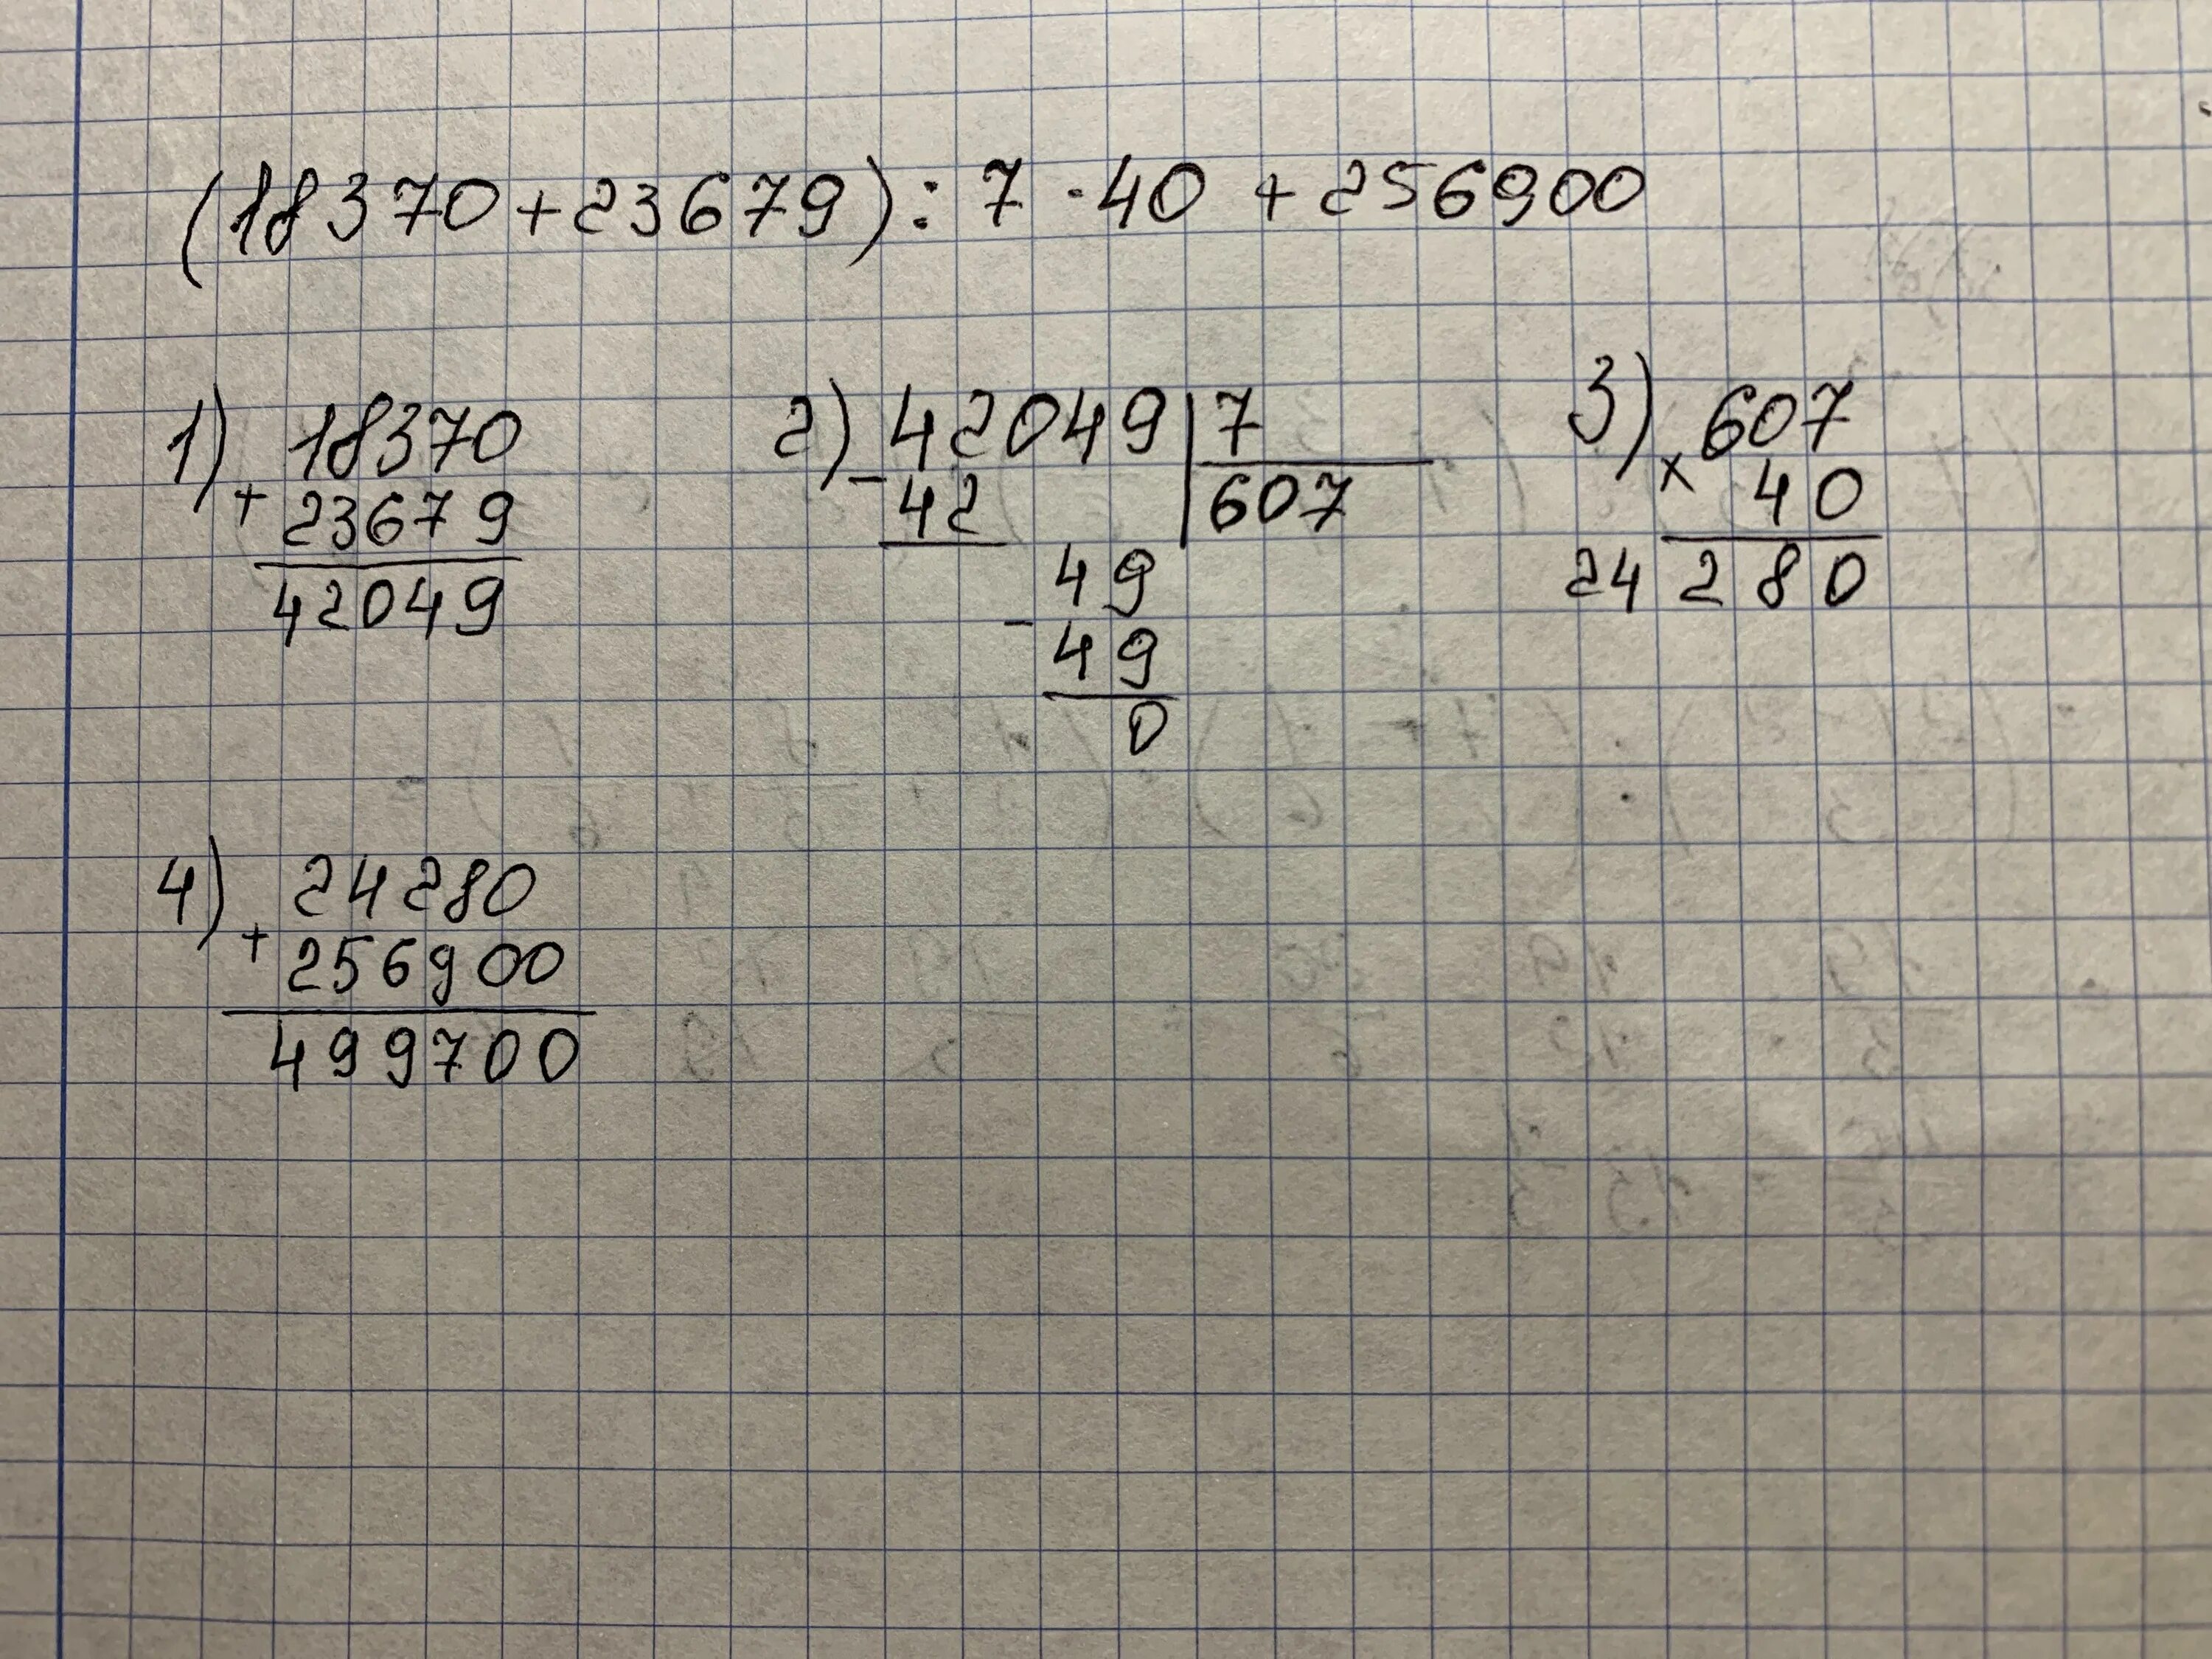 (18370+23679):7·40+256900
1) 18370
+ 23679
42049
2) - 42049 | 7
42 | 607
49
- 49
0
3) 607
× 40
24280
4) 24280
+ 256900
499700